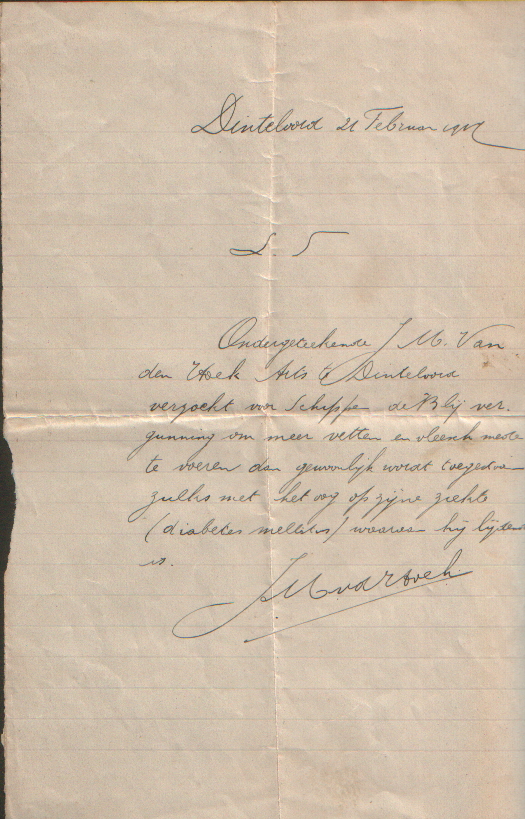 Dinteloord 21 Februari 1917
L. S
Ondergeteekende J M. Van
den Hoek Arts te Dinteloord
verzoekt voor Schipper de Blij ver-
gunning om meer vetten en vleesch mede
te voeren dan gewoonlijk wordt toegestaan
zulks met het oog op zijne ziekte
(diabetes mellitus) waaraan hij lijdende
is.
JMvdHoek